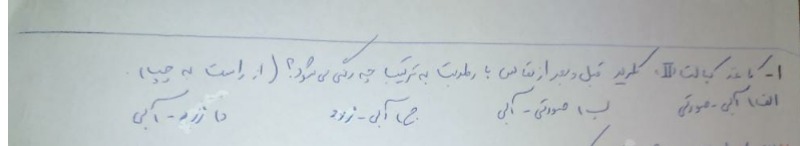 ۱- کاغذ کبالت II کلرید قبل و بعد از تماس با رطوبت به ترتیب چه رنگی می‌شود؟ (از راست به چپ)
الف) آبی - صورتی ب) صورتی - آبی ج) آبی - زرد د) زرد - آبی